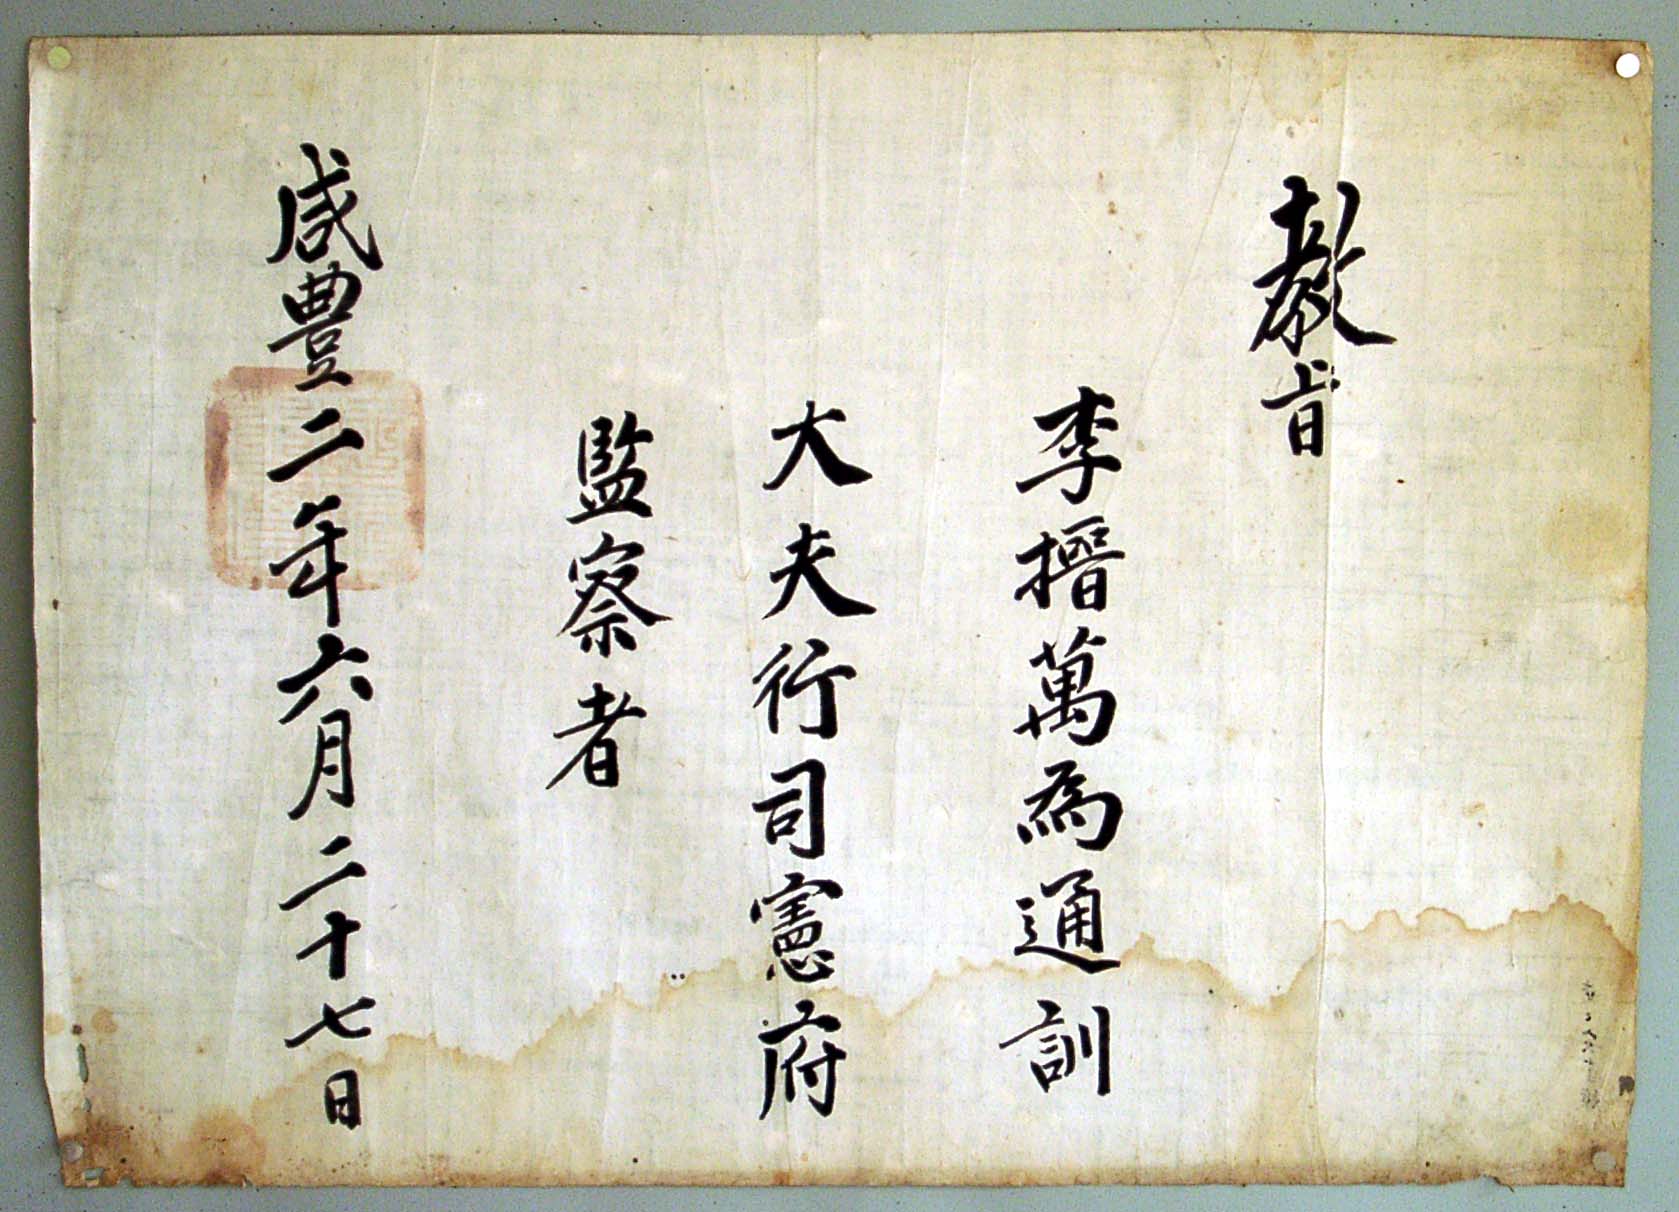 敎旨
李搢萬為通訓
大夫行司憲府
監察者
咸豊二年六月二十七日